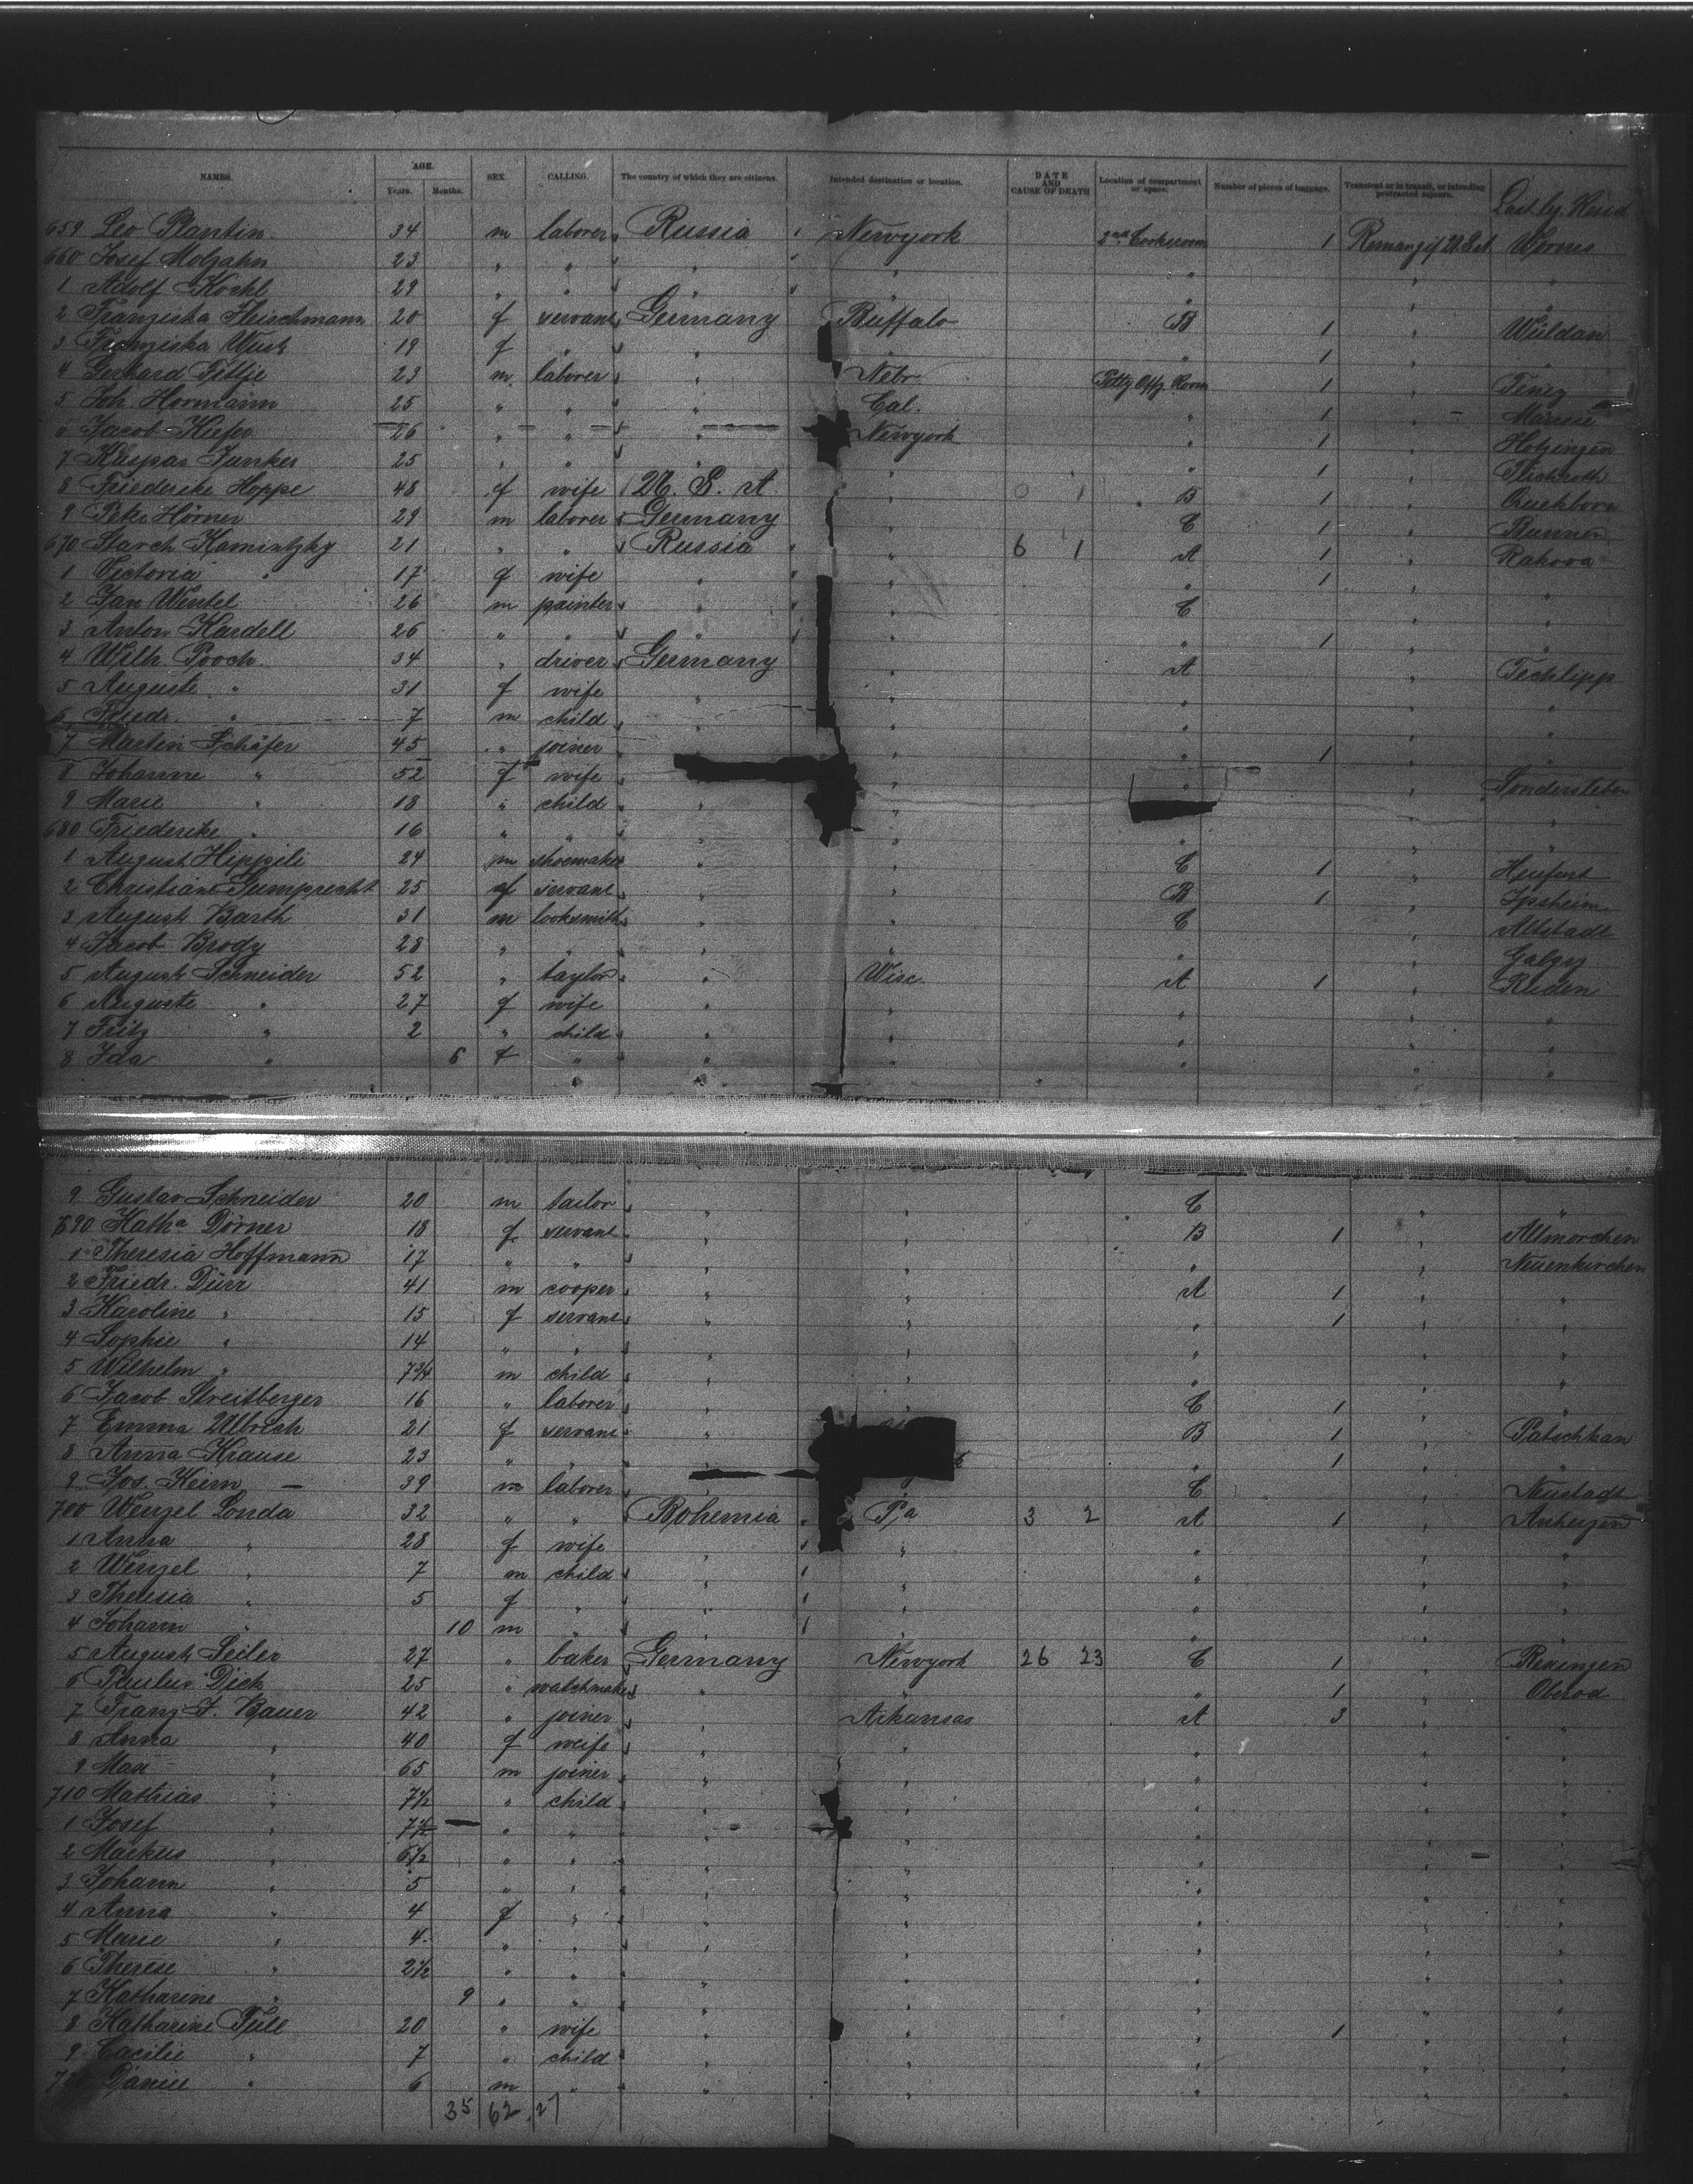 NAMES. AGE. Years. Months. SEX. CALLING. The country of which they are citizens. Intended destination or location. DATE AND CAUSE OF DEATH Location of compartment or space. Number of pieces of baggage. Transient or in transit, or intending protracted sojourn.
659 Leo Plantin 34 m laborer Russia Newyork 1
660 Josef Molzahn 23 " " " "
1 Adolf Kochl 29 " " " " " " "
2 Franziska Heischmann 20 f servant Germany Buffalo B 1 "
3 Franziska 19 f " " " " 1 "
4 Gerhard 23 m laborer " Nebr. Petty Offz. Room 1 "
5 Joh. Hormann 25 " " " Cal. " 1
6 Jacob Kiefer 26 " " " Newyork " 1 " Hotzingen
7 Kaspar Junker 25 " " " " " 1 "
8 Friederike Hoppe 48 f wife U. S. A " 0 1 B 1 " Quickborn
9 Peter Hörner 29 m laborer Germany " C 1 " Bunnen
670 Starch Kamintzky 21 " " Russia " 6 1 A 1 " Rakova
1 Victoria " 17 f wife " " " 1 " "
2 Jan Wentel 26 m painter " " C " "
3 Anton Kardell 26 " " " " " 1 " "
4 Wilh. Pooch 34 " driver Germany " A " Techlipp
5 Auguste " 31 f wife " " " " "
6 Friedr. " 7 m child " " " " "
7 Martin Schäfer 45 " joiner " " " 1 "
8 Johanne " 52 f wife " " " Sondersleben
9 Marie " 18 " child " " " "
680 Friederike " 16 " " " " " " "
1 August Heppeli 24 m shoemaker " " C 1 "
2 Christiane Gumprecht 25 f servant " " B 1 " Ipsheim
3 August Barth 31 m locksmith " " C " Altstadt
4 Jacob Brody 28 " " " " " "
5 August Schneider 52 " taylor " Wisc. A 1 " Ruden
6 Auguste " 27 f wife " " " " "
7 Fritz " 2 " child " " " " "
8 Ida " 6 f " " " " " "
9 Gustav Schneider 20 m tailor " " C " "
690 Katha Dörner 18 f servant " " B 1 " Altmorchen
1 Theresia Hoffmann 17 " " " " " " Neuenkirchen
2 Friedr. Dürr 41 m cooper " " A 1 " "
3 Karoline " 15 f servant " " " 1 " "
4 Sophie " 14 " " " " " " "
5 Wilhelm " 7 3/4 m child " " " " "
6 Jacob Streitberger 16 " laborer " C 1 " "
7 Emma Ulbrich 21 f servant " B 1 " Patschkau
8 Anna Krause 23 " " " " 1 " "
9 Jos. Keim 39 m laborer C Neustadt
700 Wenzel Londa 32 " " Bohemia Pa 3 2 A 1 "
1 Anna " 28 f wife " " " " "
2 Wenzel " 7 m child " " " " "
3 Theresia " 5 f " " " " " "
4 Johann " 10 m " " " " " "
5 August Seiler 27 " baker Germany Newyork 26 23 C 1 " Rexingen
6 Paulus Dick 25 " watchmaker " " " 1 " Oberod
7 Franz J. Bauer 42 " joiner " Arkansas A 3 " "
8 Anna " 40 f weife " " " " "
9 Max " 65 m joiner " " " " "
710 Mathias " 7 1/2 " child " " " " "
1 Josef " 7 1/2 " " " " " " "
2 Markus " 6 1/2 " " " " " " "
3 Johann " 5 " " " " " " "
4 Anna " 4 f " " " " " "
5 Marie " 4 " " " " " " "
6 Therese " 2 1/2 " " " " " " "
7 Katharine " 9 " " " " " " "
8 Katharine Tull 20 " wife " " " 1 " "
9 Cacilie " 7 " child " " " " "
Daniel " 6 m " " " " " "
35 62 27